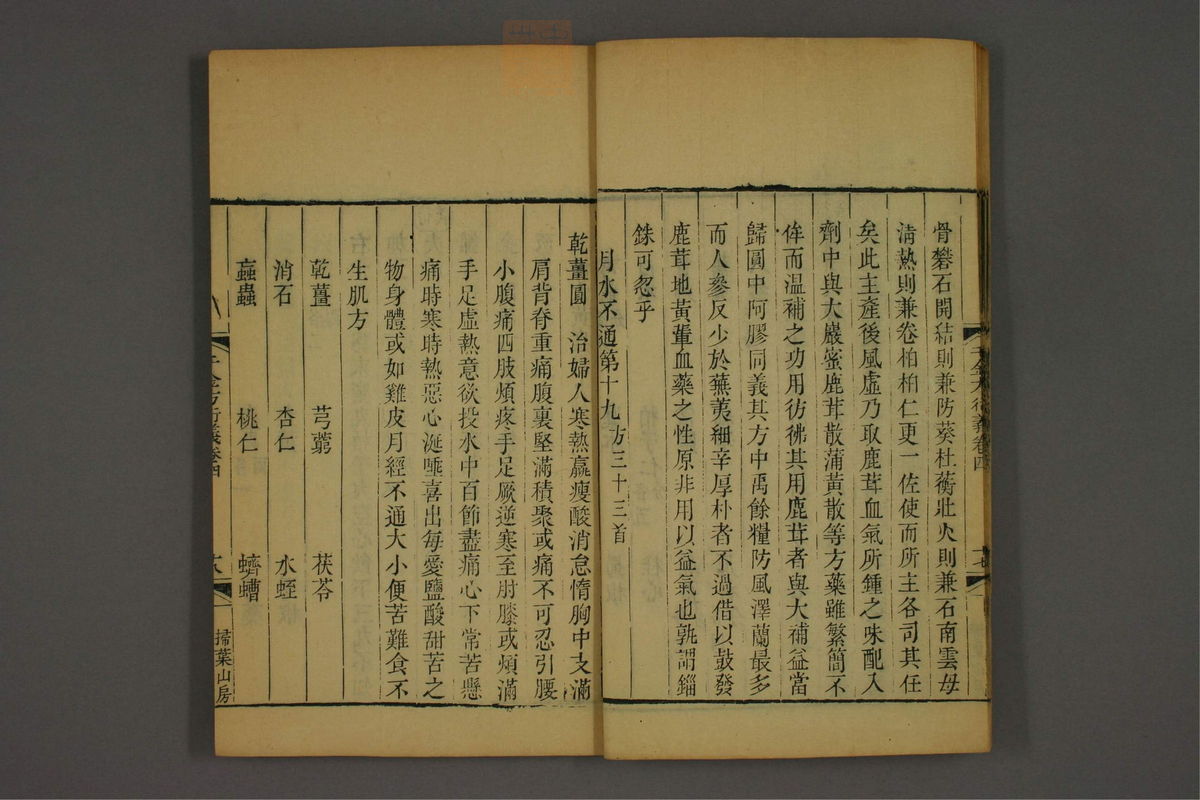 骨礬石開結則兼防葵杜蘅壯火則兼石南雲母
淸熱則兼卷柏柏仁更一佐使而所主各司其任
矣此主產後風虛乃取鹿茸血氣所鍾之味配入
劑中與大巖蜜鹿茸散蒲黃散等方藥雖繁簡不
侔而溫補之功用彷彿其用鹿茸者與大補益當
歸圓中阿膠同義其方中禹餘糧防風澤蘭最多
而人參反少於蕪荑細辛厚朴者不過借以鼓發
鹿茸地黃輩血藥之性原非用以益氣也孰謂錙
銖可忽乎
月水不通第十九方三十三首
乾薑圓 治婦人寒熱羸瘦酸消怠惰胸中支滿
肩背脊重痛腹裏堅滿積聚或痛不可忍引腰
小腹痛四肢煩疼手足厥逆寒至肘膝或煩滿
手足虛熱意欲投水中百節盡痛心下常苦懸
痛時寒時熱惡心涎唾喜出每愛鹽酸甜苦之
物身體或如雞皮月經不通大小便苦難食不
生肌方
乾薑 芎藭 茯苓
消石 杏仁 水蛭
蝱蟲 桃仁 蠐螬
千金方衍義卷四
掃葉山房